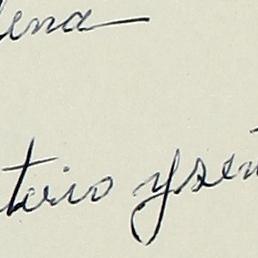 lena
terio y señ